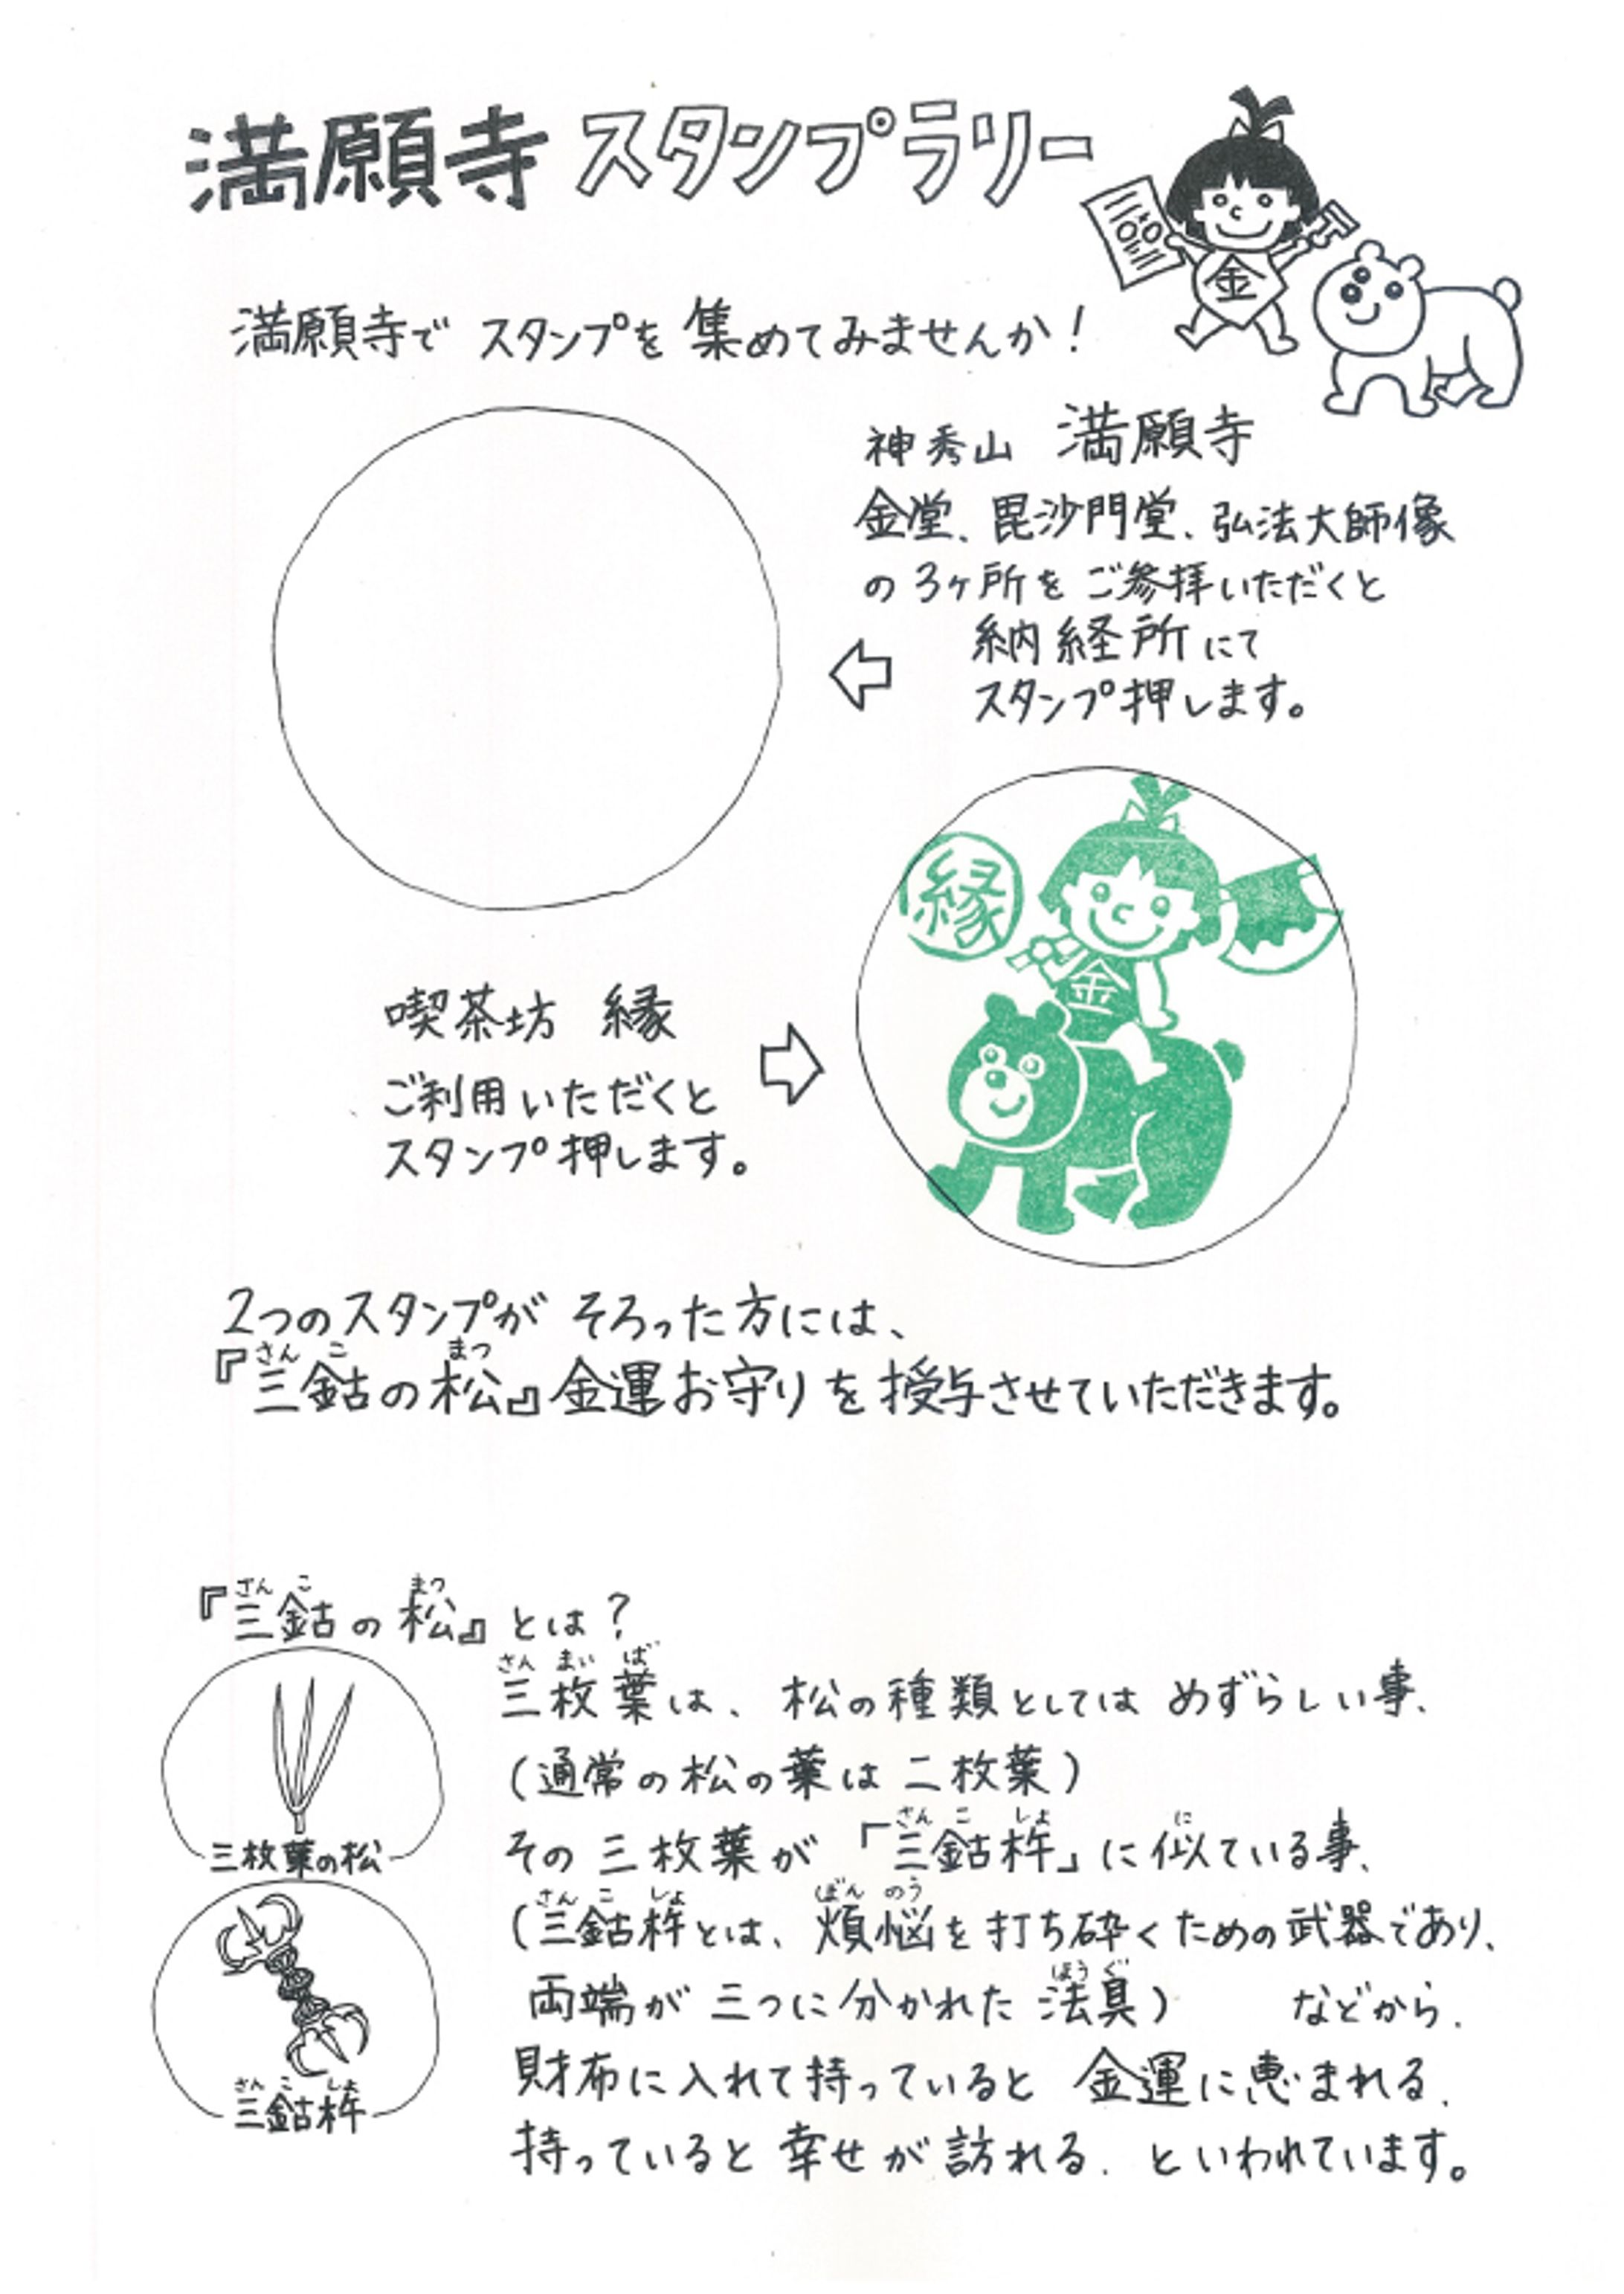 満願寺 スタンプラリー
金
満願寺で スタンプを 集めてみませんか！
神秀山 満願寺
金堂、毘沙門堂、弘法大師像
の3ヶ所を ご参拝いただくと
納経所にて
スタンプ押します。
縁
金
喫茶坊 縁
ご利用いただくと
スタンプ押します。
2つのスタンプが そろった方には、
さん こ まつ
『三鈷の松』金運お守りを授与させていただきます。
さん こ まつ
『三鈷の松』とは？
さん まい ば
三枚葉は、松の種類としては めずらしい事、
（通常の松の葉は 二枚葉）
さん こ しょ に
その 三枚葉が 「三鈷杵」に似ている事、
さん こ しょ ぼん のう
（三鈷杵とは、煩悩を打ち砕くための武器であり、
ほう ぐ
両端が 三つに分かれた 法具） などから、
財布に入れて持っていると 金運に恵まれる、
持っていると 幸せが訪れる、といわれています。
三枚葉の松
さん こ しょ
三鈷杵